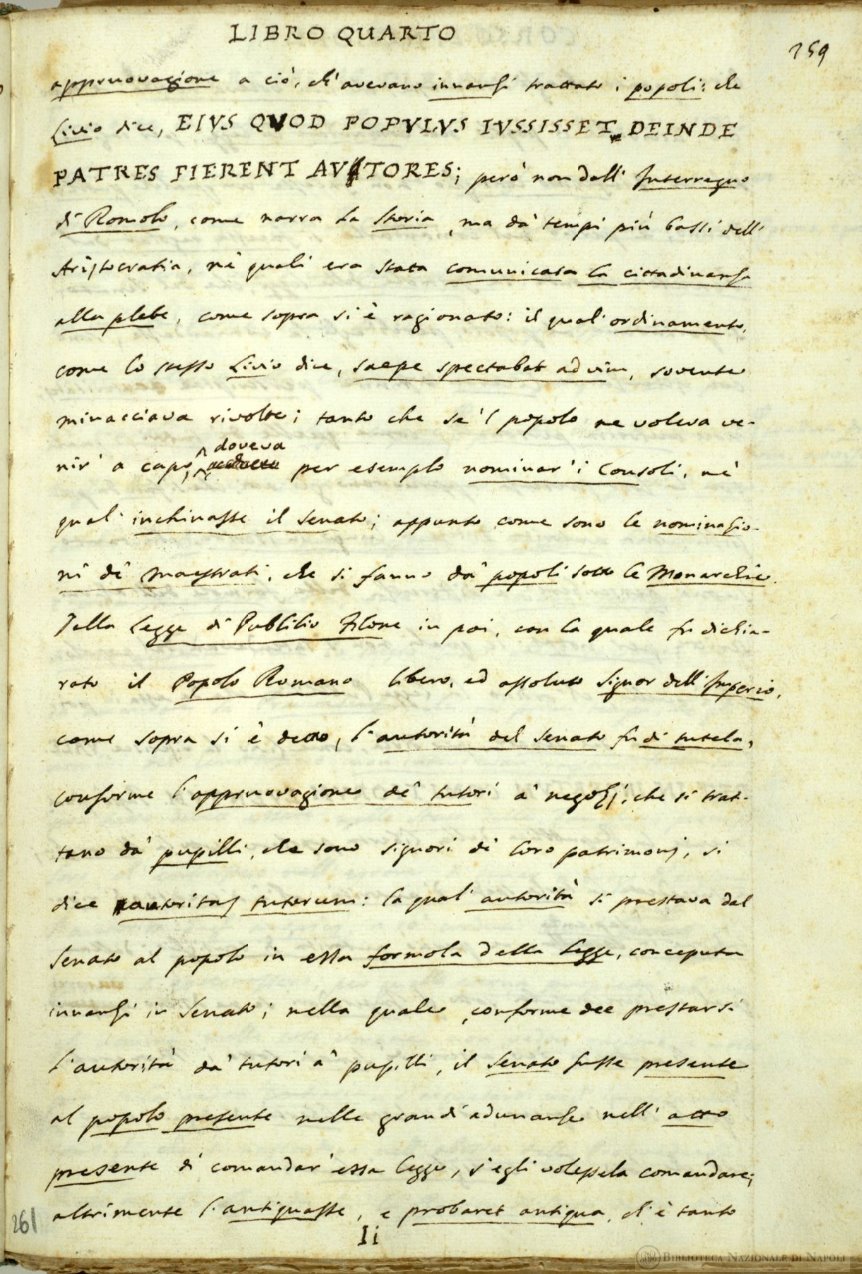 LIBRO QUARTO
259
appruovagione a ciò, ch'avevano innanzi trattato i popoli: che
Livio dice, EIVS QVOD POPVLVS IVSSISSET, DEINDE
PATRES FIERENT AVTORES; però non dall'Interregno
di Romolo, come narra la Storia, ma da' tempi più bassi dell'
Aristocratia, ne' quali era stata comunicata la cittadinanza
alla plebe, come sopra si è ragionato: il qual'ordinamento,
come lo stesso Livio dice, saepe spectabat ad vim, sovente
minacciava rivolte; tanto che se 'l popolo ne voleva ve-
nir' a capo, doveva per esemplo nominar' i Consoli, ne'
quali inchinasse il Senato; appunto come sono le nominazio-
ni de' maestrati, che si fanno da' popoli sotto le Monarchie.
Dalla Legge di Publilio Filone in poi, con la quale fu dichia-
rato il Popolo Romano libero, ed assoluto Signor dell'Imperio,
come sopra si è detto, l'autorità del Senato fu di tutela,
conforme l'appruovagione de' tutori a' negozj, che si trat-
tano da' pupilli, che sono signori di loro patrimonj, si
dice autoritas tutorum: la qual'autorità si prestava dal
Senato al popolo in essa formola della Legge, conceputa
innanzi in Senato; nella quale, conforme dee prestarsi
l'autorità da' tutori a' pupilli, il Senato fusse presente
al popolo presente nelle grandi adunanze nell'atto
presente di comandar'essa legge, s'egli volessela comandare;
altrimente l'antiquasse, e probaret antiqua, ch'è tanto
Ii
261
BIBLIOTECA NAZIONALE DI NAPOLI